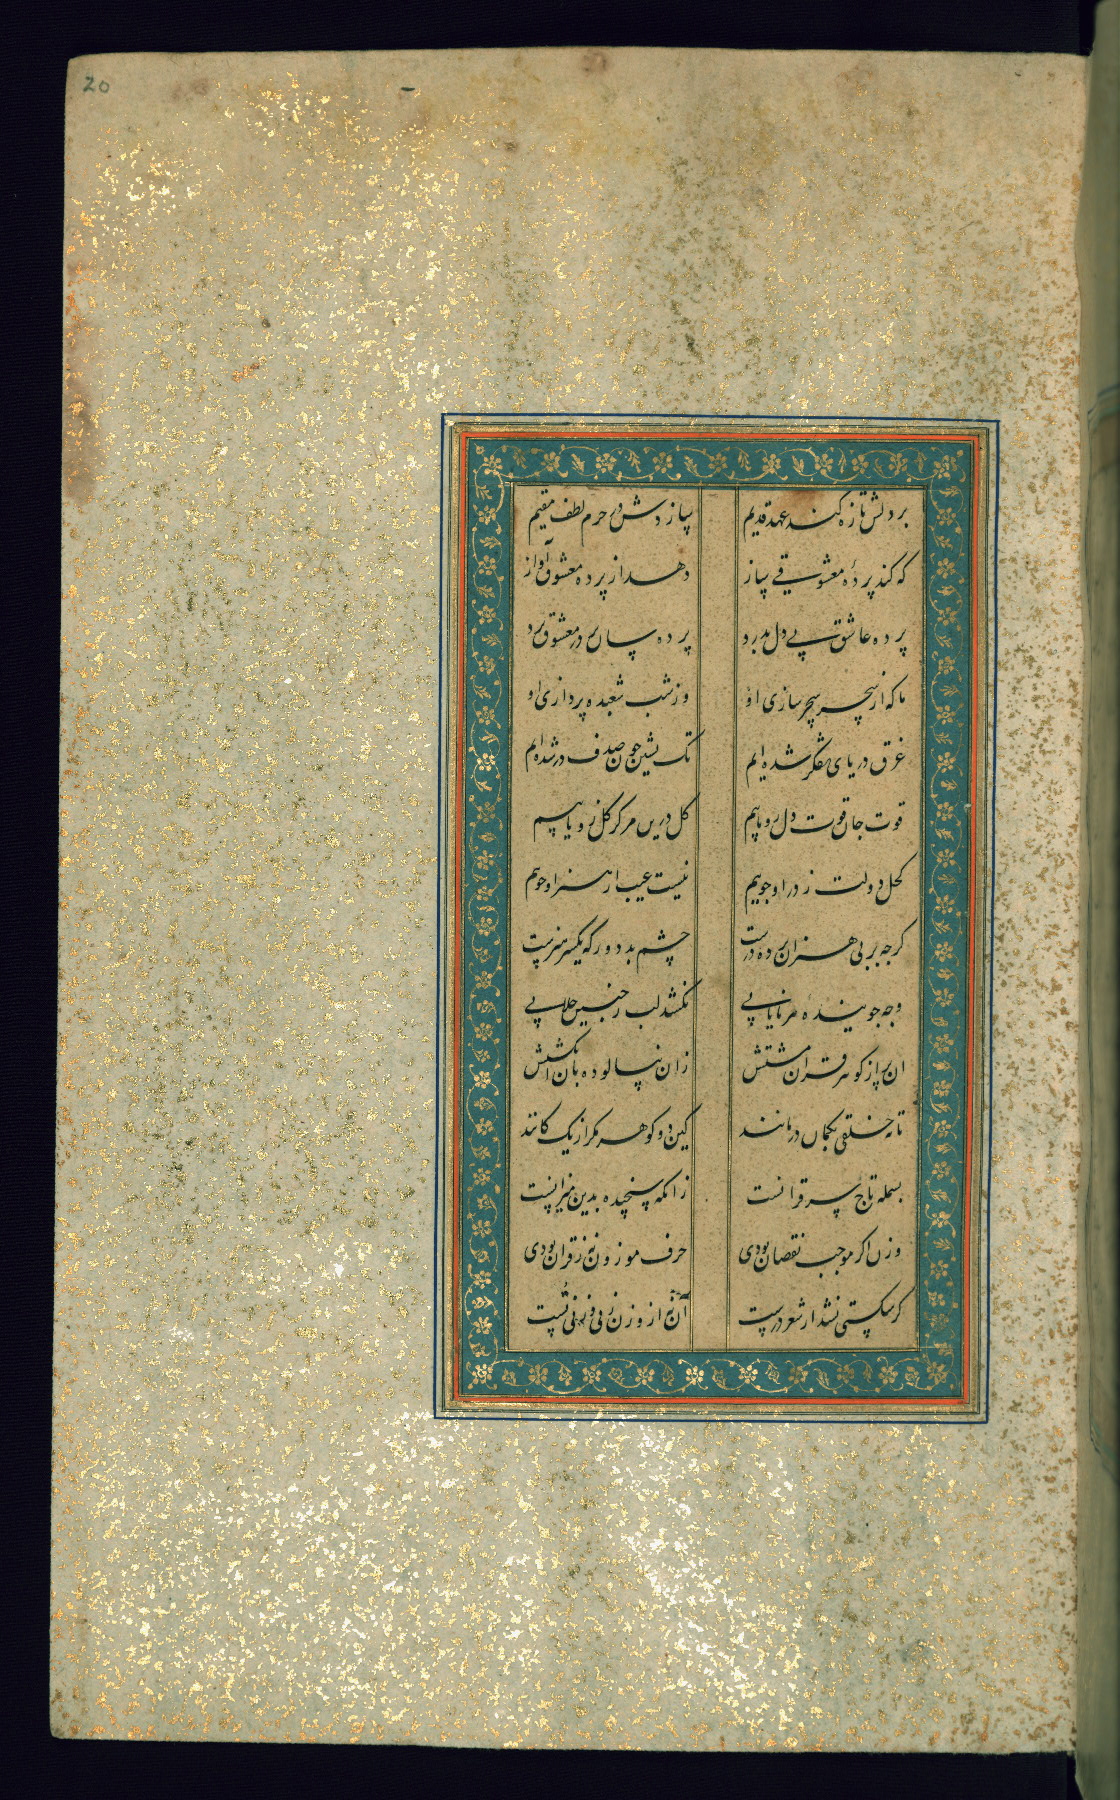 20
بر دلش تازه کند عهد قدیم سازدش در حرم لطف مقیم
که کند پردهٔ معشوقی ساز دهد از پرده معشوق آواز
پرده عاشق بی دل بدرد پرده سان بر در معشوق برد
ما که از سحر سحر سازی او وز شب شعبده پردازی او
غرق دریای تفکر شده ایم تک نشین چون صدف در شده ایم
قوت جان قوت دل زو یابیم کل درین مرکز کل زو یابیم
کحل دولت ز در او جوییم نیست عیب ار هنر او جوییم
کرچه بر بی هنران پرده درست چشم بد دور که یکسر هنرست
وجه جوینده هر نایابی نکشد لب ز چنین جلابی
ان پر از کوهر قران مشتش زان نیالوده بان انکشتش
تا نه خلقی بکمان درمانند کین دو کوهر مکر از یک کانند
بسمله تاج سر قرانست زانکه سنجیده بدین میزانست
وزن اکر موجب نقصان بودی حرف موزون نه ز قران بودی
کر شکستی نشد از شعر درست آن نه از وزن ز بی وزنی تست